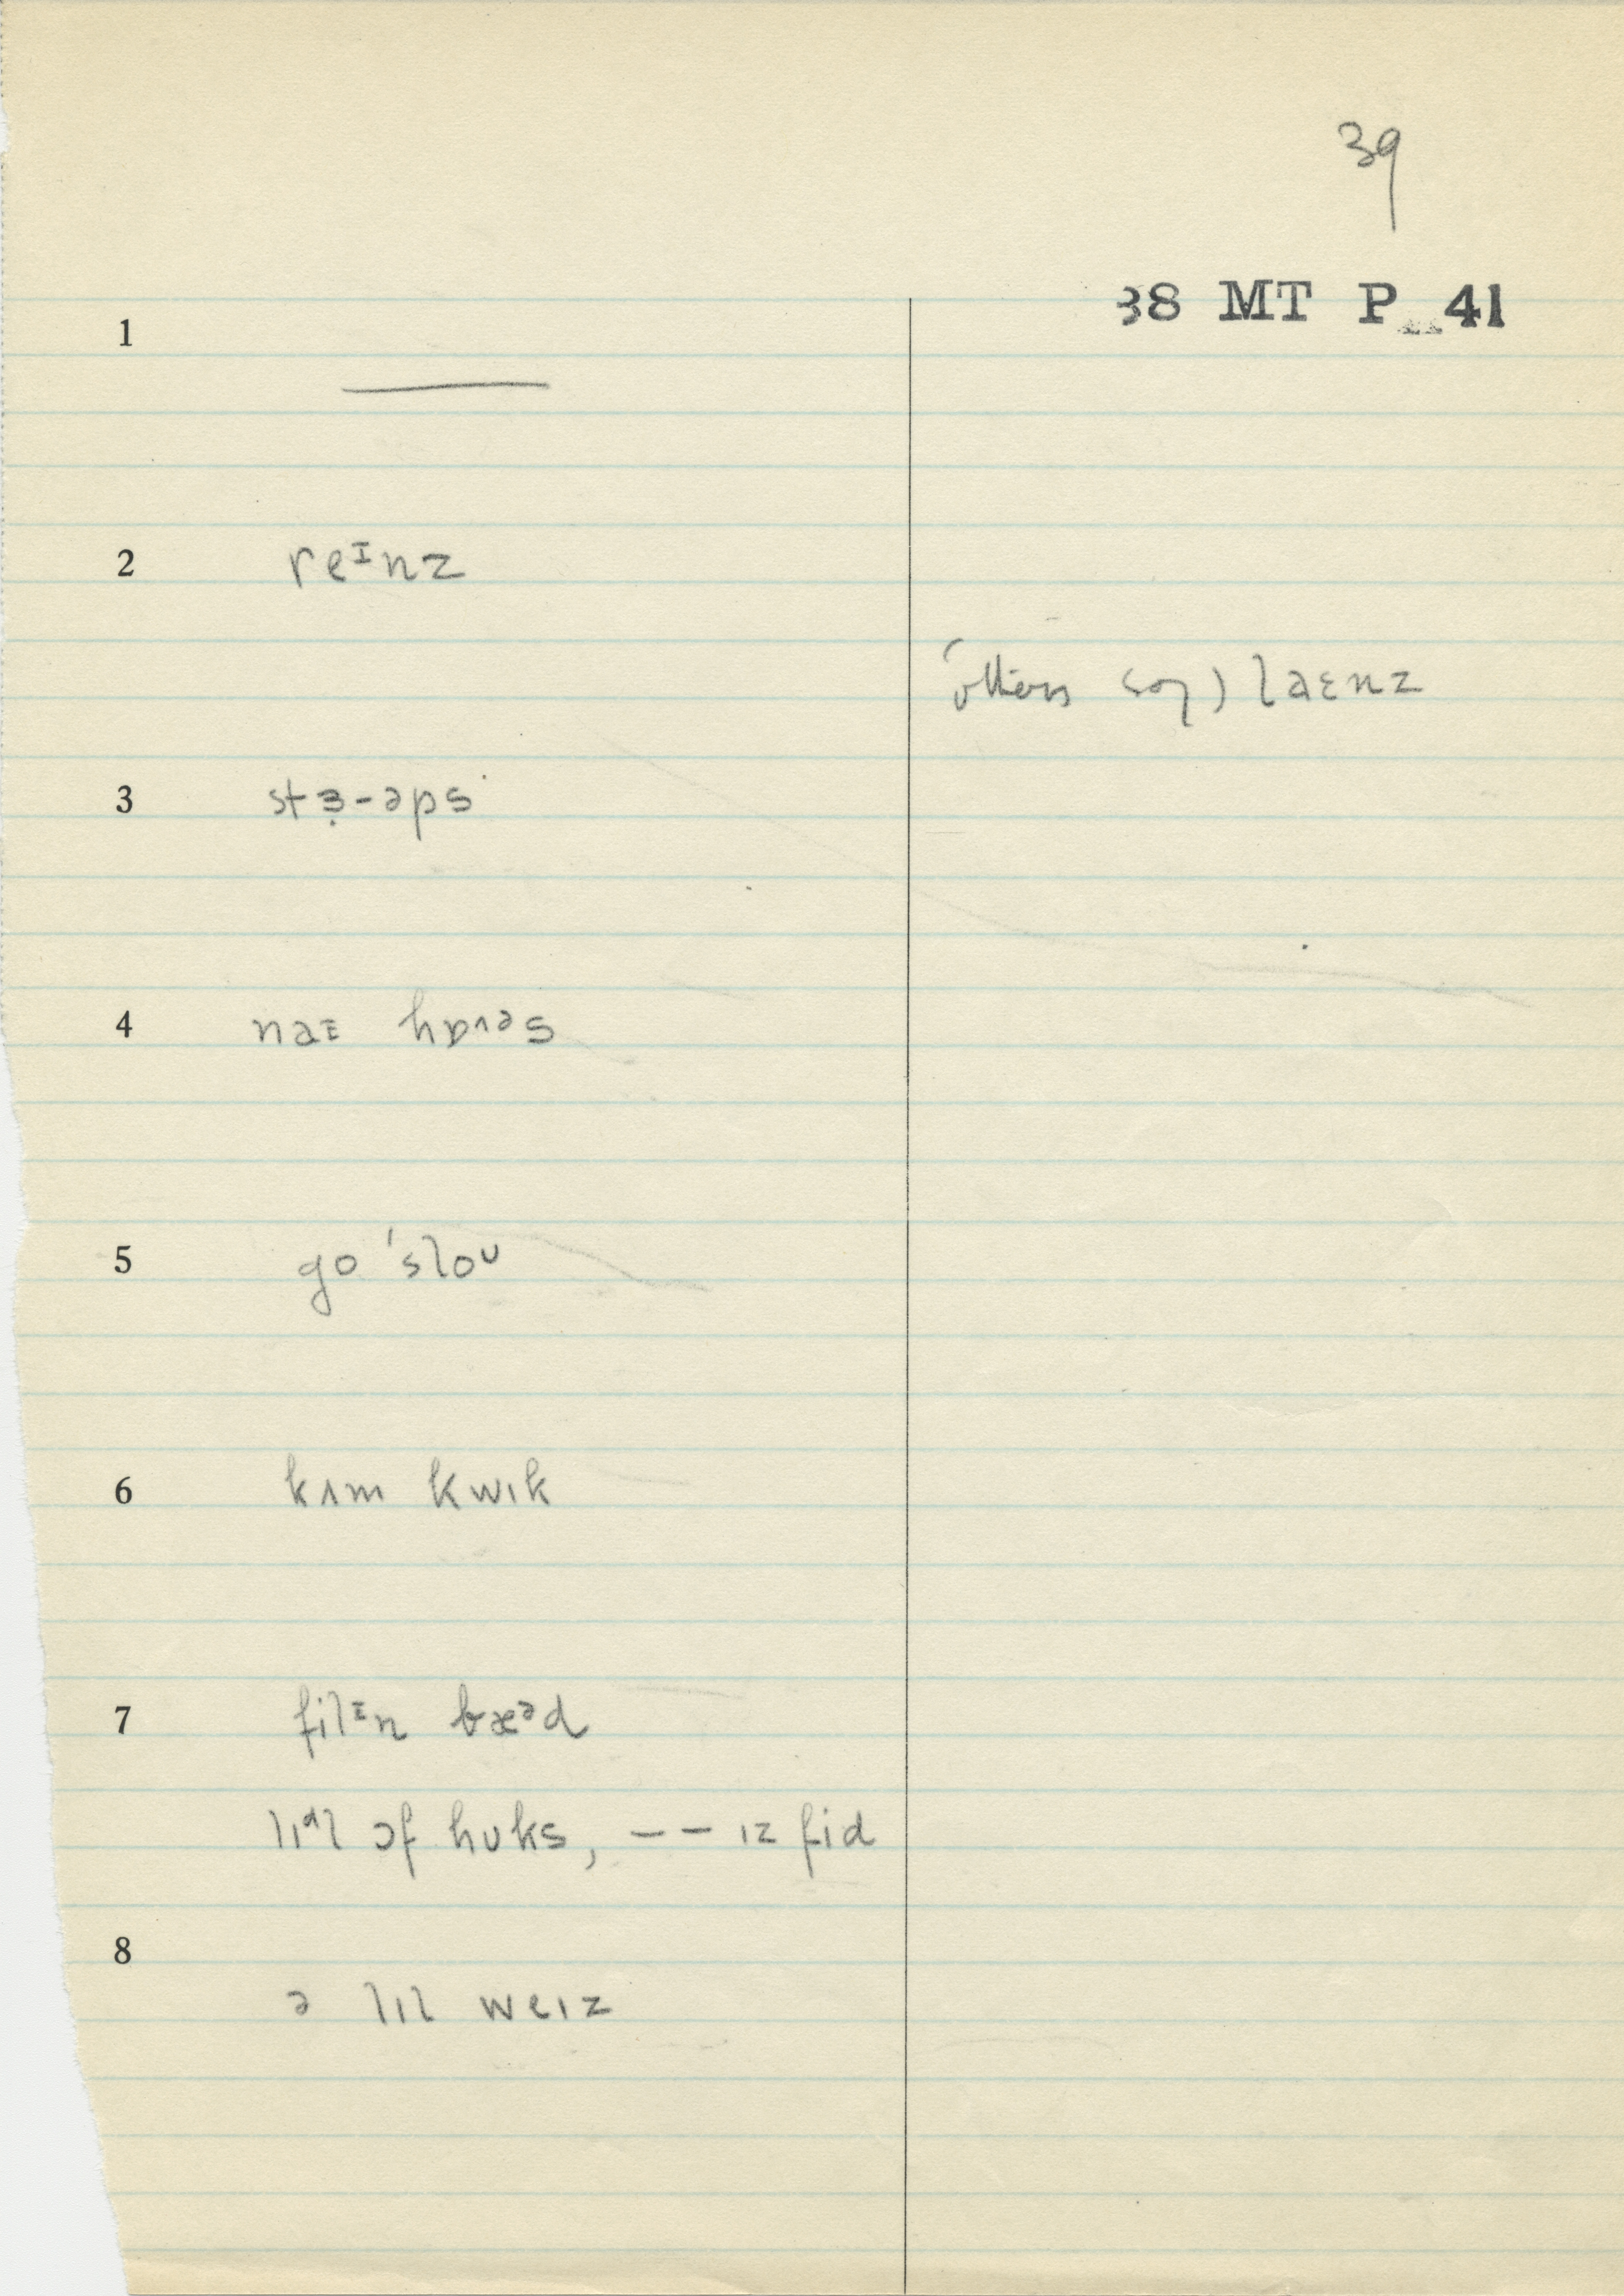 39
38 MT P 41
1 ———
2 reᴵnz
(others say) laɛnz
3 stɜ̣-əps
4 naɪ hɒʌəs
5 go 'sloᴜ
6 kʌm kwɪk
7 filɪn bæᵊd
lɪᵈl ɔf huks, – – ɪz fid
8
ə lɪl weɪz